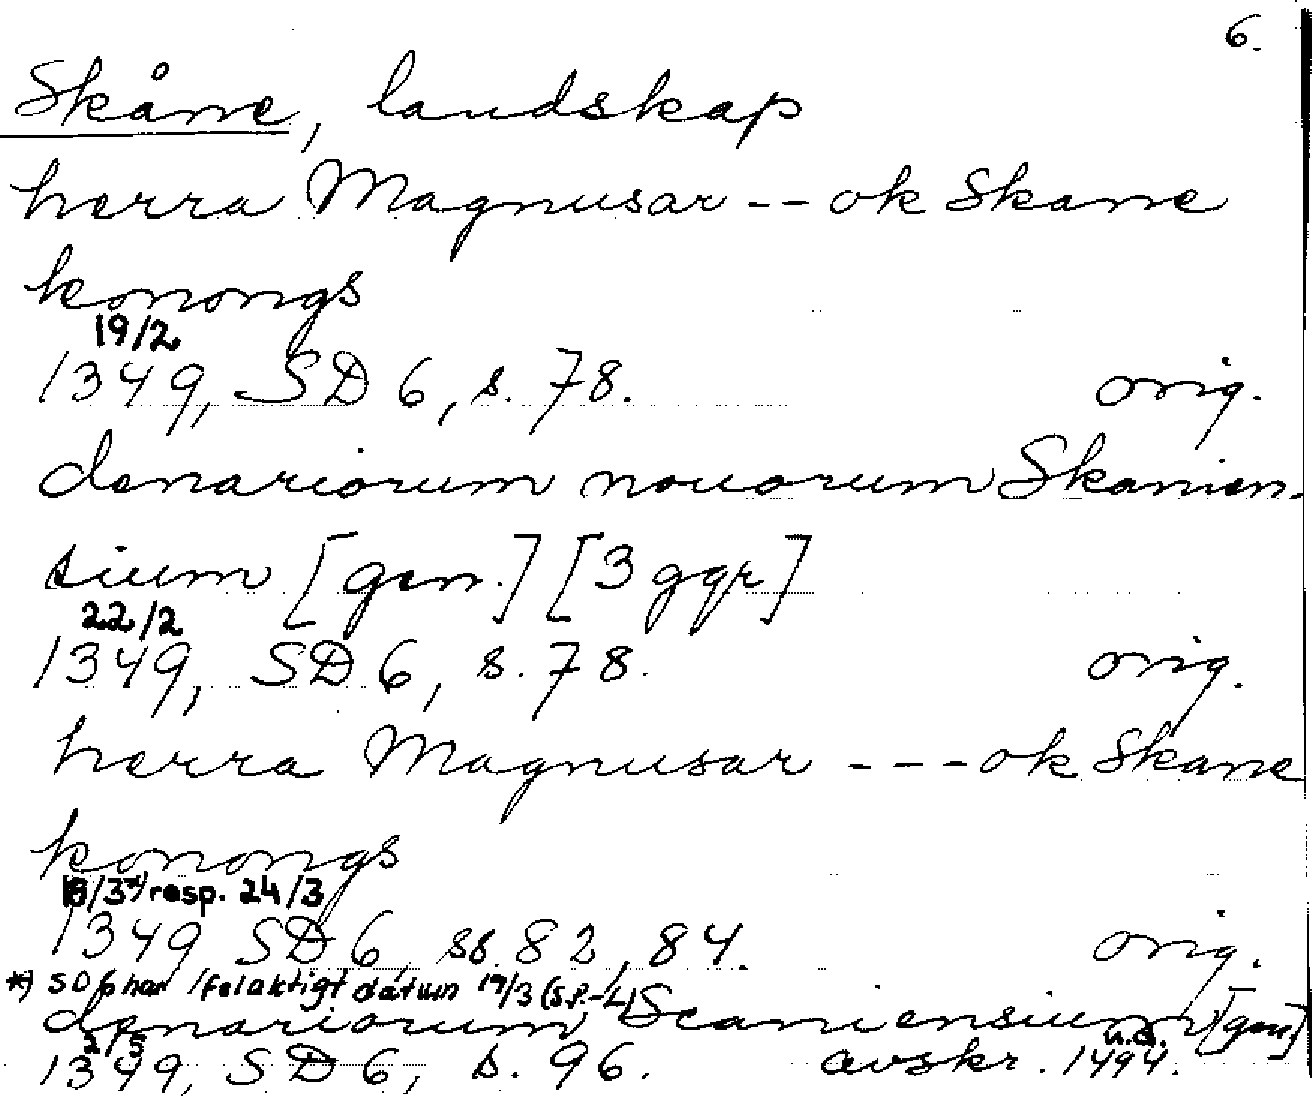 6.
Skåne, landskap
herra Magnusar -- ok Skane
konongs
19/2
1349, SD 6, s. 78. orig.
denariorum nouorum Skanien-
sium [gen.] [3 ggr]
22/2
1349, SD 6, s. 78. orig.
herra Magnusar --- ok Skane
konongs
18/3*) resp. 24/3
1349 SD 6, ss. 82, 84. orig.
*) SD 6 har felaktigt datum 19/3 (S.P.-L)
denariorum Scaniensium [gen]
2/5 u.a.
1349, SD 6, s. 96. avskr. 1494.